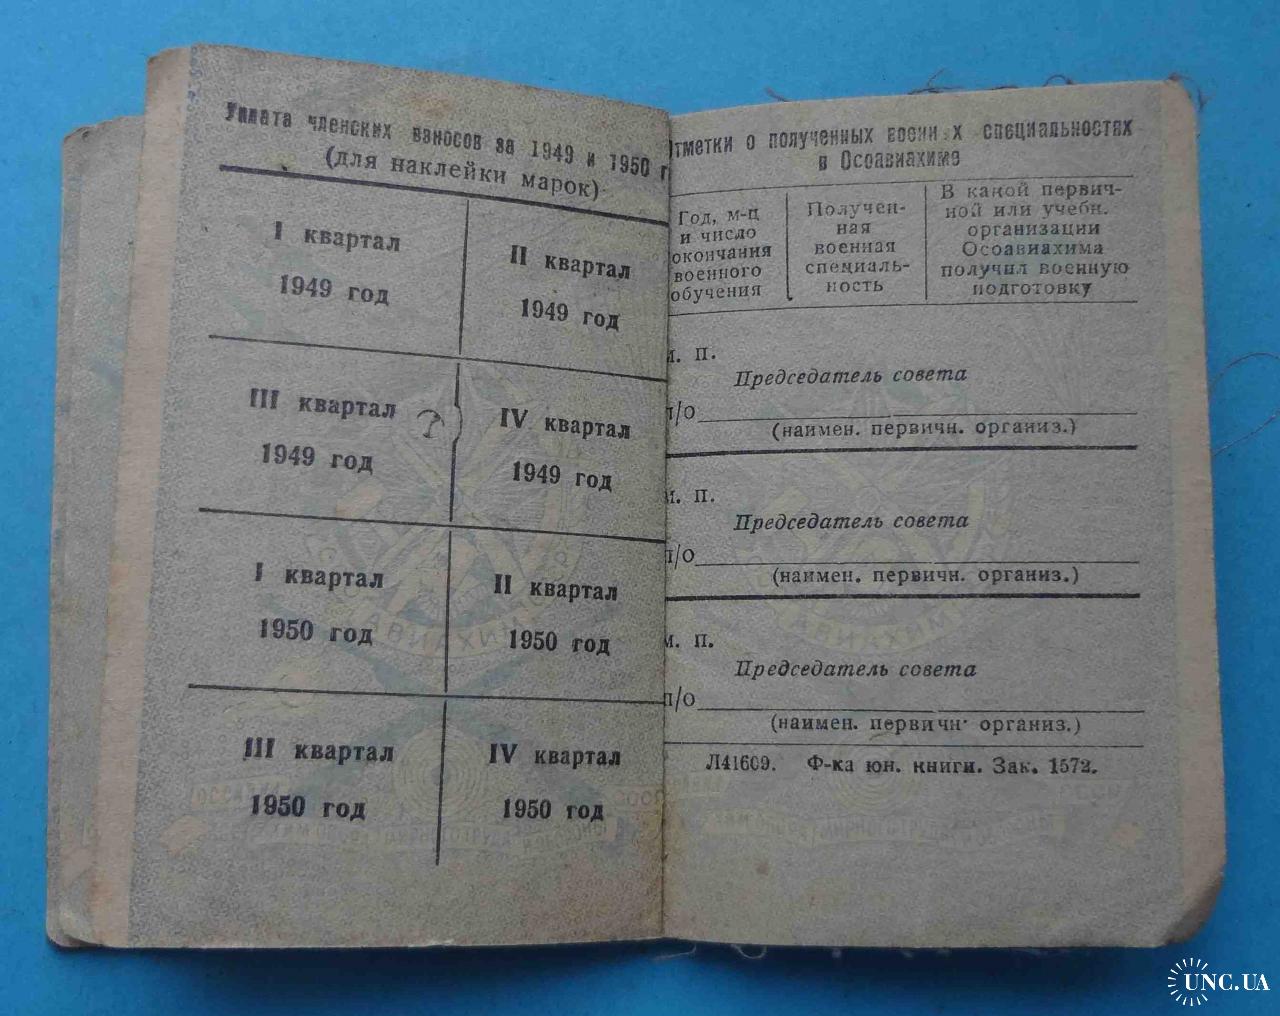 Уплата членских взносов за 1949 и 1950 г
(для наклейки марок)
I квартал
1949 год
II квартал
1949 год
III квартал
1949 год
IV квартал
1949 год
I квартал
1950 год
II квартал
1950 год
III квартал
1950 год
IV квартал
1950 год
тметки о полученных военн х специальностях
в Осоавиахиме
Год, м-ц
и число
окончания
военного
обучения
Получен-
ная
военная
специаль-
ность
В какой первич-
ной или учебн.
организации
Осоавиахима
получил военную
подготовку
м. п.
Председатель совета
п/о
(наимен. первичн. организ.)
м. п.
Председатель совета
п/о
(наимен. первичн. организ.)
м. п.
Председатель совета
п/о
(наимен. первичн· организ.)
Л41609. Ф-ка юн. книги. Зак. 1572.
UNC.UA